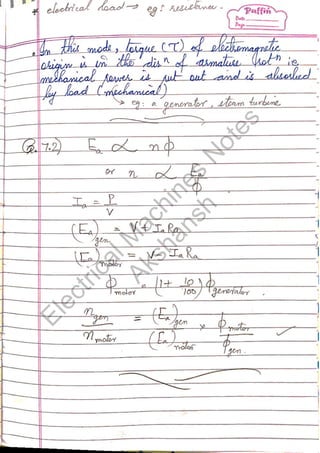 * electrical load → eg: resistance.
Puffin
Date
Page
• In this mode, torque (τ) of electromagnetic
origin is in the dirⁿ of armature rotⁿ ie
mechanical power is put out and is absorbed
by load (mechanical)
↳ eg: a generator, steam turbine
Q. 7.2) Ea ∝ nφ
or n ∝ Ea/φ
Ia = P/V
(Ea)gen = V + Ia Ra
(Ea)motor = V - Ia Ra
φmotor = (1 + 10/100) φgenerator.
ngen/nmotor = (Ea)gen/(Ea)motor × φmotor/φgen. ✓
Electrical Machines Notes
Akshansh